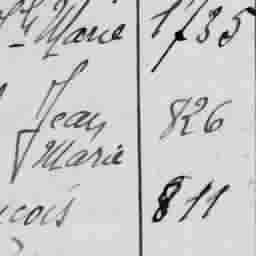 Marie 1735
Jean 826
Marie
811